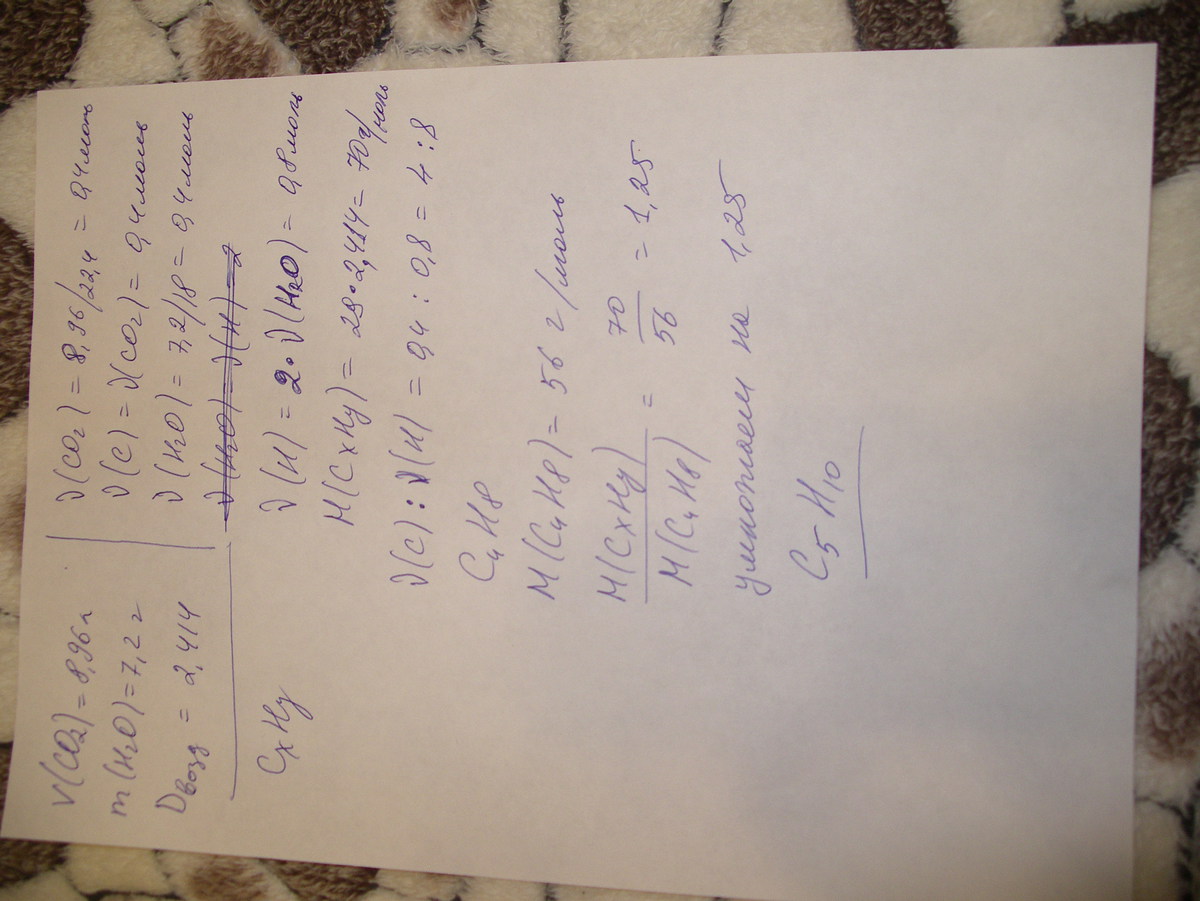 V(CO2) = 8,96 л
m(H2O) = 7,2 г
Dвозд = 2,414
CxHy
ν(CO2) = 8,96/22,4 = 0,4 моль
ν(C) = ν(CO2) = 0,4 моль
ν(H2O) = 7,2/18 = 0,4 моль
ν(H2O) = ν(H) = 2
ν(H) = 2·ν(H2O) = 0,8 моль
M(CxHy) = 29·2,414 = 70 г/моль
ν(C) : ν(H) = 0,4 : 0,8 = 4 : 8
C4H8
M(C4H8) = 56 г/моль
M(CxHy)/M(C4H8) = 70/56 = 1,25
умножаем на 1,25
C5H10